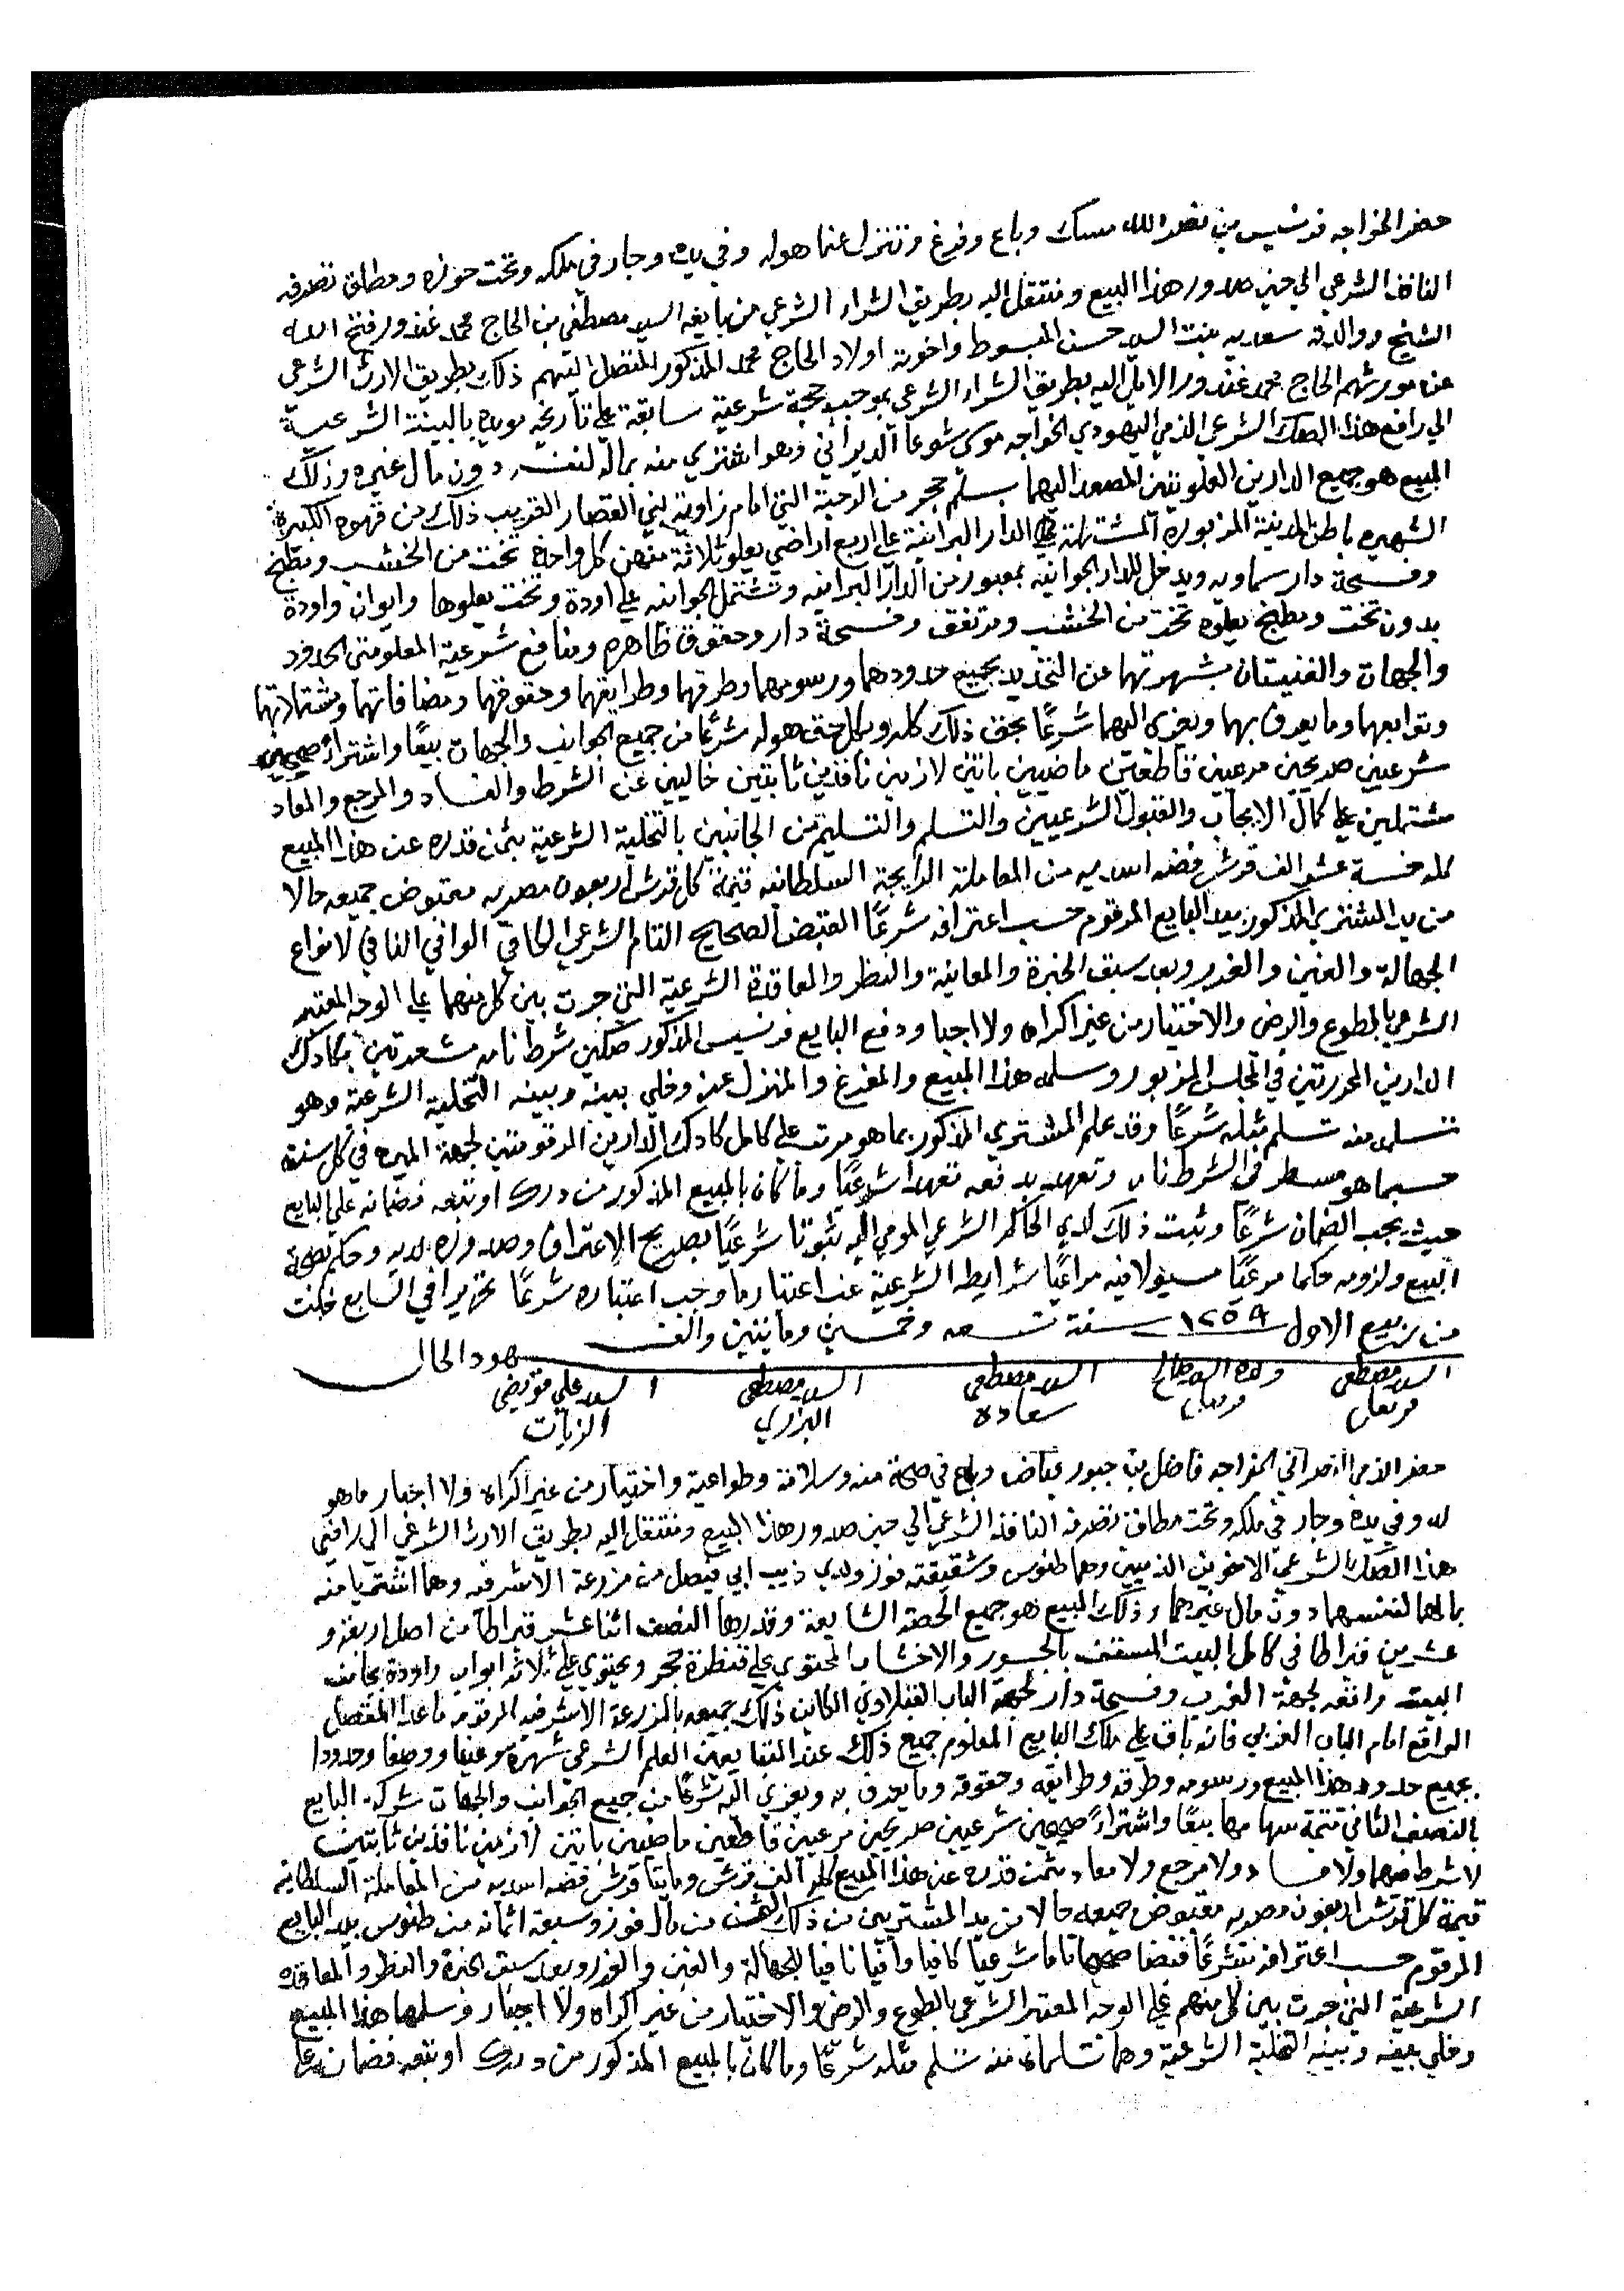 حضر الخواجه فرنسيس بن نصر الله مسك وباع وفرغ وتنزل عنما هو له وفي يده وجار في ملكه وتحت حوزه ومطلق تصرفه
النافذ الشرعي الي حين صدور هذا البيع ومنتقل اليه بطريق الشراء الشرعي من بايعه السيد مصطفي بن الحاج محمد غندور فتح الله
الشيخ ووالدته سعديه بنت السيد حسن المبسوط واخوته اولاد الحاج محمد المذكور المنتقل اليهم ذلك بطريق الارث الشرعي
عن مورثهم الحاج محمد غندور الايل اليه بطريق الشراء الشرعي بموجب حجة شرعية سابقة علي تاريخه مويده بالبينة الشرعية
الي رافع هذا الصك الشرعي الذمي اليهودي الخواجه موسى شوعا الديراني وهو اشتري منه بماله لنفسه دون مال غيره وذلك
المبيع هو جميع الدارين العلويتين المصعد اليهما بسلم حجر من الرحبة التي امام زاوية بني القصار القريب ذلك من قهوه الكبيره
الشهيره باطن المدينة المزبوره المشتملة الدار البرانية علي اربع اراضي يعلو ثلاثة منهن كل واحدة تخت من الخشب ومطبخ
وفسحة دار سماويه ويدخل للدار الجوانيه بمعبور من الدار البرانيه وتشتمل الجوانيه علي اودة وتخت يعلوها وايوان واودة
بدون تخت ومطبخ يعلوه تخت من الخشب ومرتفق وفسحة دار وحقوق ظاهره ومنافع شرعية المعلومتي الحدود
والجهات والغنيتان بشهرتهما عن التحديد بجميع حدودهما ورسومهما وطرقهما وطرايقهما وحقوقهما ومضافاتهما ومشتملاتهما
وتوابعهما وما يعرف بهما ويعزى اليهما شرعًا بحق ذلك كله وبكل حق هو له شرعًا من جميع الجوانب والجهات بيعًا واشتراء صحيحين
شرعيين صريحين مرعيين قاطعين ماضيين باتين لازمين نافذين ثابتين خاليين عن الشرط والفساد والمرجع والمعاد
مشتملين علي كمال الايجاب والقبول الشرعيين والتسلم والتسليم من الجانبين بالتخلية الشرعية بثمن قدره عن هذا المبيع
كله خمسة عشر الف قرش فضه اسديه من المعاملة الرايجة السلطانيه قيمة كل قرش اربعون مصريه مقبوض جميعه حالا
من يد المشتري المذكور بيد البايع المرقوم حسب اعترافه شرعًا القبض الصحيح التام الشرعي الكافي الوافي النافي لانواع
الجهالة والغبن والغدر وبعد سبق الخبرة والمعاينة والنظر والمعاقدة الشرعية التي جرت بين كل منهما علي الوجه المعتبر
الشرعي بالطوع والرضى والاختيار من غير اكراه ولا اجبا ودفع البايع فرنسيس المذكور صكين شرطنامه مشعرتين بكادك
الدارين المحررتين في المجلس المزبور وسلمه هذا المبيع والمفرغ والمنزل عنه وخلي بينه وبينه التخلية الشرعية وهو
تسلمه منه تسلم مثله شرعًا وقد علم المشتري المذكور بما هو مرتب علي كامل كادك الدارين المرقومتين لجهة الميره في كل سنة
حسبما هو مسطر في الشرطنامه وتعهد بدفعه تعهدا شرعيًا وما كان بالمبيع المذكور من درك او تبعه فضمانه علي البايع
حيث يجب الضمان شرعًا وثبت ذلك لدي الحاكم الشرعي المومي اليه ثبوتا شرعيًا بصريح الاعتراف وصدوره لديه وحكم بصحة
البيع ولزومه حكما مرعيًا مسيولا فيه مراعيًا شرايطه الشرعية عند اعتبار ما وجب اعتباره شرعًا تحريرا في السابع خلت
من ربيع الاول ١٢٥٩ سنة تسعه وخمسين ومايتين والف
شهود الحال
السيد مصطفى ولده السيد صالح السيد مصطفى السيد مصطفى السيد علي مويض
سعاده البزري الزيات
حضر الذمي النصراني الخواجه فاضل بن جبور فياض وباع في صحة منه وسلامة وطواعية واختيار من غير اكراه ولا اجبار ما هو
له وفي يده وجار في ملكه وتحت مطلق تصرفه النافذ الشرعي الي حين صدور هذا المبيع ومنتقل اليه بطريق الارث الشرعي الي رافعي
هذا الصك الشرعي الاخوين الذميين وهما طنوس وشقيقته فوز ولدي ذيب ابي فيصل من مزرعة الاشرفيه وهما اشتريا منه
بمالهما لنفسهما دون مال غيرهما وذلك المبيع هو جميع الحصة الشايعة وقدرها النصف اثنا عشر قيراطا من اصل اربعة و
عشرين قيراطا في كامل البيت المسقف بالجسور والاخشاب المحتوي علي قنطرة حجر ويحتوي علي ثلاثة ابواب واودة بجانب
البيت واقعه لجهة الغرب وفسحة دار لجهة الباب القبلاوي الكاين ذلك جميعه بالمزرعة الاشرفيه المرقومه ما عدا المفصل
الواقع امام الباب الغربي فانه باق علي ملك البايع المعلوم جميع ذلك عند المتبايعين العلم الشرعي شهرة موقعا ووصفا وحدودا
بجميع حدود هذا المبيع ورسومه وطرقه وطرايقه وحقوقه وما يعرف به ويعزي اليه شرعًا من جميع الجوانب والجهات شركة البايع
بالنصف الثاني تتمة سهامها بيعًا واشتراءً صحيحين شرعيين صريحين مرعيين قاطعين ماضيين باتين لازمين نافذين ثابتين
لا شرط فيهما ولا فساد ولا مرجع ولا معاد بثمن قدره عن هذا المبيع كله الف قرش ومايتا قرش فضه اسديه من المعاملة السلطانيه
قيمة كل قرش اربعون مصريه مقبوض جميعه حالا من يد المشتريين من ذلك الثمن من مال فوز وسبعة اثمانه من طنوس بيد البايع
المرقوم حسب اعترافه شرعًا قبضا صحيحا تاما شرعيًا كافيا وافيا نافيا للجهالة والغبن والغدر وبعد سبق الخبرة والنظر والمعاقده
الشرعية التي جرت بين كل منهم علي الوجه المعتبر الشرعي بالطوع والرضى والاختيار من غير اكراه ولا اجبار وسلمهما هذا المبيع
وخلي بينه وبينه التخلية الشرعية وهما تسلماه منه تسلم مثله شرعًا وما كان بالمبيع المذكور من درك او تبعه فضمانه علي